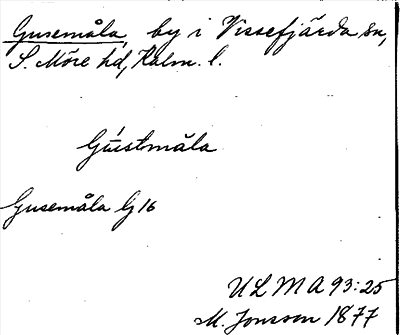 Gusemåla, by i Vissefjärda sn,
S. Möre hd, Kalm. l.
Gústmåla
Gusemåla G 16
ULMA 93:25
M. Jonsson 1877